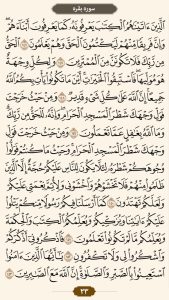 سوره بقره
ٱلَّذِينَ ءَاتَيْنَٰهُمُ ٱلْكِتَٰبَ يَعْرِفُونَهُۥ كَمَا يَعْرِفُونَ أَبْنَآءَهُمْ
وَإِنَّ فَرِيقًا مِّنْهُمْ لَيَكْتُمُونَ ٱلْحَقَّ وَهُمْ يَعْلَمُونَ ١٤٦ ٱلْحَقُّ
مِن رَّبِّكَ فَلَا تَكُونَنَّ مِنَ ٱلْمُمْتَرِينَ ١٤٧ وَلِكُلٍّ وِجْهَةٌ
هُوَ مُوَلِّيهَا فَٱسْتَبِقُوا۟ ٱلْخَيْرَٰتِ أَيْنَ مَا تَكُونُوا۟ يَأْتِ بِكُمُ ٱللَّهُ
جَمِيعًا إِنَّ ٱللَّهَ عَلَىٰ كُلِّ شَىْءٍ قَدِيرٌ ١٤٨ وَمِنْ حَيْثُ خَرَجْتَ
فَوَلِّ وَجْهَكَ شَطْرَ ٱلْمَسْجِدِ ٱلْحَرَامِ وَإِنَّهُۥ لَلْحَقُّ مِن رَّبِّكَ
وَمَا ٱللَّهُ بِغَٰفِلٍ عَمَّا تَعْمَلُونَ ١٤٩ وَمِنْ حَيْثُ خَرَجْتَ فَوَلِّ
وَجْهَكَ شَطْرَ ٱلْمَسْجِدِ ٱلْحَرَامِ وَحَيْثُ مَا كُنتُمْ فَوَلُّوا۟
وُجُوهَكُمْ شَطْرَهُۥ لِئَلَّا يَكُونَ لِلنَّاسِ عَلَيْكُمْ حُجَّةٌ إِلَّا ٱلَّذِينَ
ظَلَمُوا۟ مِنْهُمْ فَلَا تَخْشَوْهُمْ وَٱخْشَوْنِى وَلِأُتِمَّ نِعْمَتِى عَلَيْكُمْ
وَلَعَلَّكُمْ تَهْتَدُونَ ١٥٠ كَمَآ أَرْسَلْنَا فِيكُمْ رَسُولًا مِّنكُمْ يَتْلُوا۟
عَلَيْكُمْ ءَايَٰتِنَا وَيُزَكِّيكُمْ وَيُعَلِّمُكُمُ ٱلْكِتَٰبَ وَٱلْحِكْمَةَ
وَيُعَلِّمُكُم مَّا لَمْ تَكُونُوا۟ تَعْلَمُونَ ١٥١ فَٱذْكُرُونِىٓ أَذْكُرْكُمْ
وَٱشْكُرُوا۟ لِى وَلَا تَكْفُرُونِ ١٥٢ يَٰٓأَيُّهَا ٱلَّذِينَ ءَامَنُوا۟
ٱسْتَعِينُوا۟ بِٱلصَّبْرِ وَٱلصَّلَوٰةِ إِنَّ ٱللَّهَ مَعَ ٱلصَّٰبِرِينَ ١٥٣
٢٣